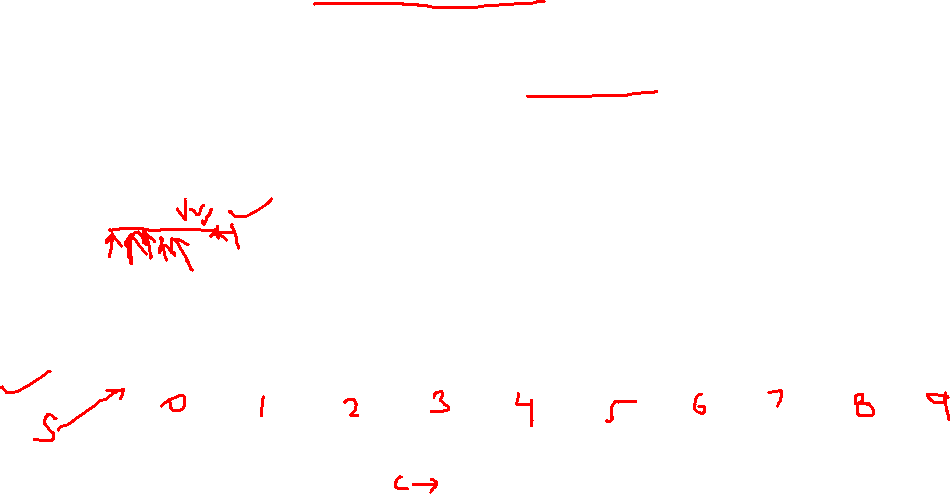 S → 0 1 2 3 4 5 6 7 8 9
C →